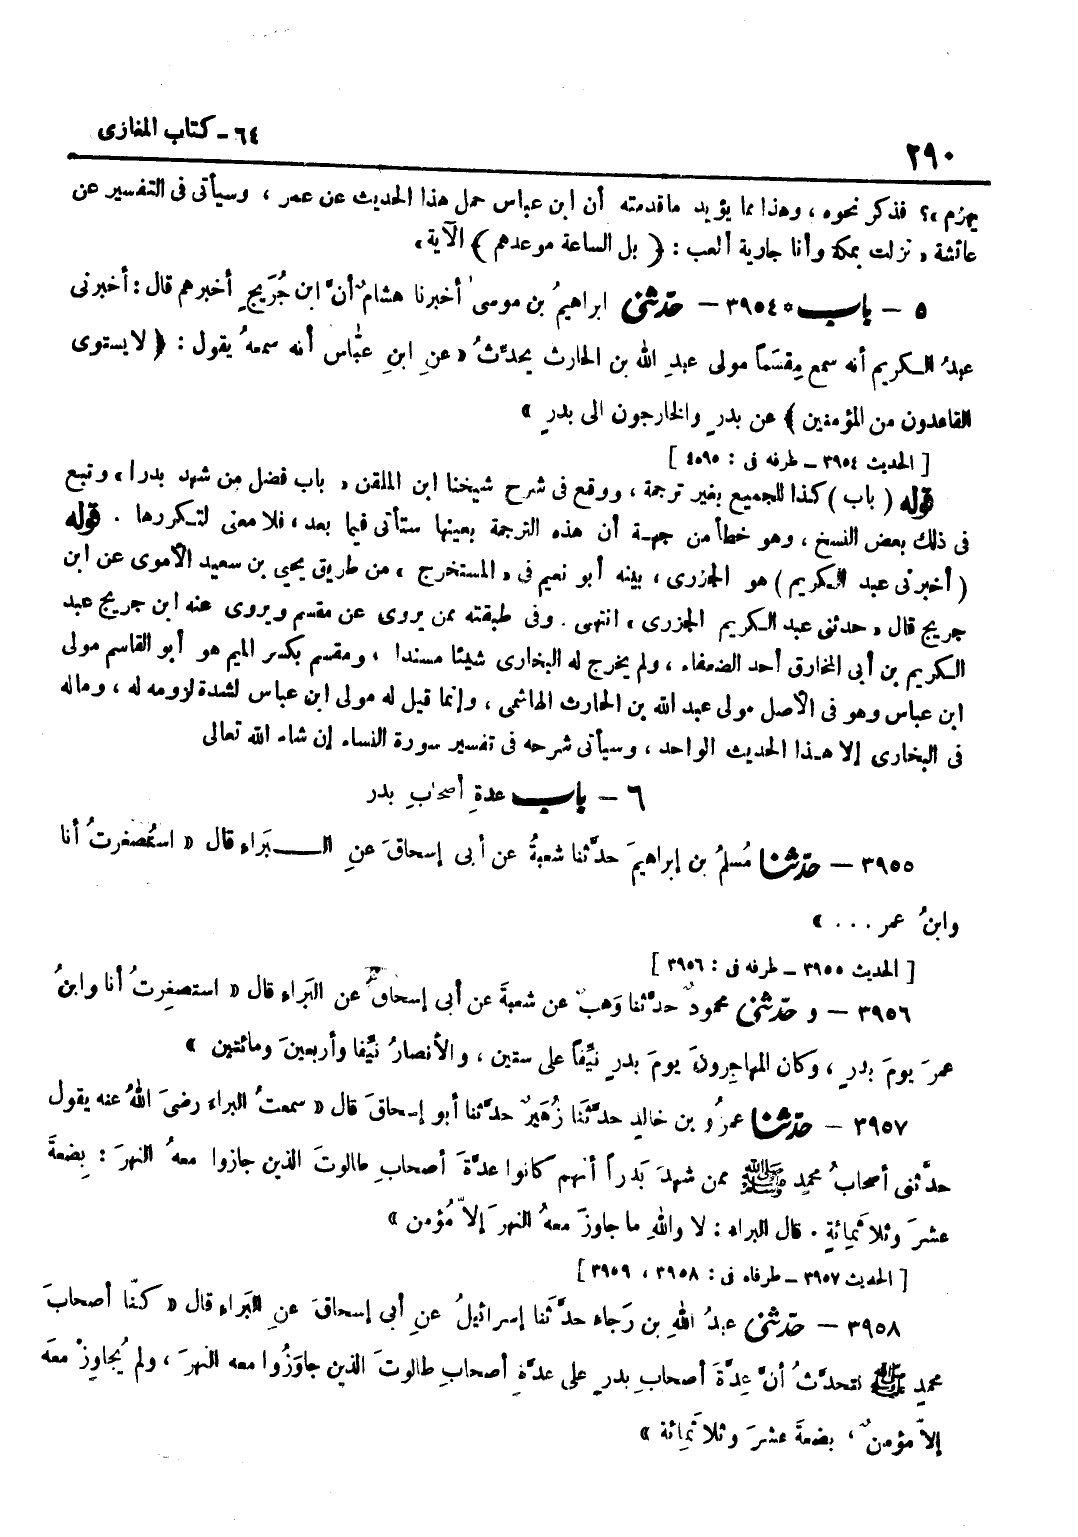 ٦٤ - كتاب المغازى
٢٩٠
يهزم »؟ فذكر نحوه ، وهذا مما يؤيد ماقدمته أن ابن عباس حمل هذا الحديث عن عمر ، وسيأتى فى التفسير عن
عائشة « نزلت بمكة وأنا جارية ألعب : ﴿ بل الساعة موعدهم ﴾ الآية »
٥ – باب * ٣٩٥٤ – حدّثنى ابراهيمُ بن موسى أخبرنا هشامٌ أنَّ ابن جُرَيجٍ أخبرهم قال : أخبرنى
عبدُ الـكريم أنه سمع مِقسَماً مولى عبدِ الله بن الحارث يحدِّثُ « عنِ ابنِ عبّاس أنه سمعهُ يقول : ﴿ لا يستوى
القاعدون من المؤمنين ﴾ عن بدرٍ والخارجون الى بدرٍ »
[ الحديث ٣٩٥٤ – طرفه فى : ٤٥٩٥ ]
قوله ( باب ) كذا للجميع بغير ترجمة ، ووقع فى شرح شيخنا ابن الملقن « باب فضل من شهد بدرا » وتبع
فى ذلك بعض النسخ ، وهو خطأ من جهة أن هذه الترجمة بعينها ستأتى فيما بعد ، فلا معنى لتـكررها . قوله
( أخبرنى عبد الـكريم ) هو الجزرى ، بينه أبو نعيم فى « المستخرج » من طريق يحيى بن سعيد الأموى عن ابن
جريج قال « حدثنى عبد الـكريم الجزرى » انتهى . وفى طبقته ممن يروى عن مقسم ويروى عنه ابن جريج عبد
الـكريم بن أبى المخارق أحد الضعفاء ، ولم يخرج له البخارى شيئا مسندا ، ومقسم بكسر الميم هو أبو القاسم مولى
ابن عباس وهو فى الأصل مولى عبد الله بن الحارث الهاشمى ، وإنما قيل له مولى ابن عباس لشدة لزومه له ، وماله
فى البخارى إلا هـذا الحديث الواحد ، وسيأتى شرحه فى تفسير سورة النساء إن شاء الله تعالى
٦ – باب عدةِ أصحابِ بدر
٣٩٥٥ – حدّثنا مُسلمُ بن إبراهيمَ حدَّثنا شعبةُ عن أبى إسحاقَ عنِ البَراءِ قال « استُصغرتُ أنا
وابنُ عمر ... »
[ الحديث ٣٩٥٥ – طرفه فى : ٣٩٥٦ ]
٣٩٥٦ – و حدّثنى محمودٌ حدَّثنا وَهبٌ عن شعبةَ عن أبى إسحاقَ عن البَراءِ قال « استصغِرتُ أنا وابنُ
عمرَ يومَ بدرٍ ، وكان المهاجِرونَ يومَ بدرٍ نيِّفاً على ستين ، والأنصارُ نيِّفا وأربعينَ ومائتين »
٣٩٥٧ – حدّثنا عمرُو بن خالدٍ حدَّثَنا زُهَيرٌ حدَّثنا أبو إسحاقَ قال « سمعتُ البراءَ رضىَ اللهُ عنه يقول
حدَّثنى أصحابُ محمدٍ ﷺ ممن شهدَ بَدراً أنهم كانوا عدَّةَ أصحابِ طالوتَ الذين جازوا معهُ النهرَ : بِضعةَ
عشرَ وثلاثَمِائةٍ . قال البراء : لا واللهِ ما جاوزَ معهُ النهرَ إلاّ مُؤمن »
[ الحديث ٣٩٥٧ – طرفاه فى : ٣٩٥٨ ، ٣٩٥٩ ]
٣٩٥٨ – حدّثنى عبدُ اللهِ بن رَجاءٍ حدَّثَنا إسرائيلُ عن أبى إسحاقَ عنِ البَراءِ قال « كنّا أصحابَ
محمدٍ ﷺ نتحدَّثُ أنَّ عِدَّةَ أصحابِ بدرٍ على عدَّةِ أصحابِ طالوتَ الذين جاوَزُوا معه النهرَ ، ولم يُجاوِزْ معهُ
إلاّ مؤمنٌ ، بضعةَ عشرَ وثلاثَمِائة »